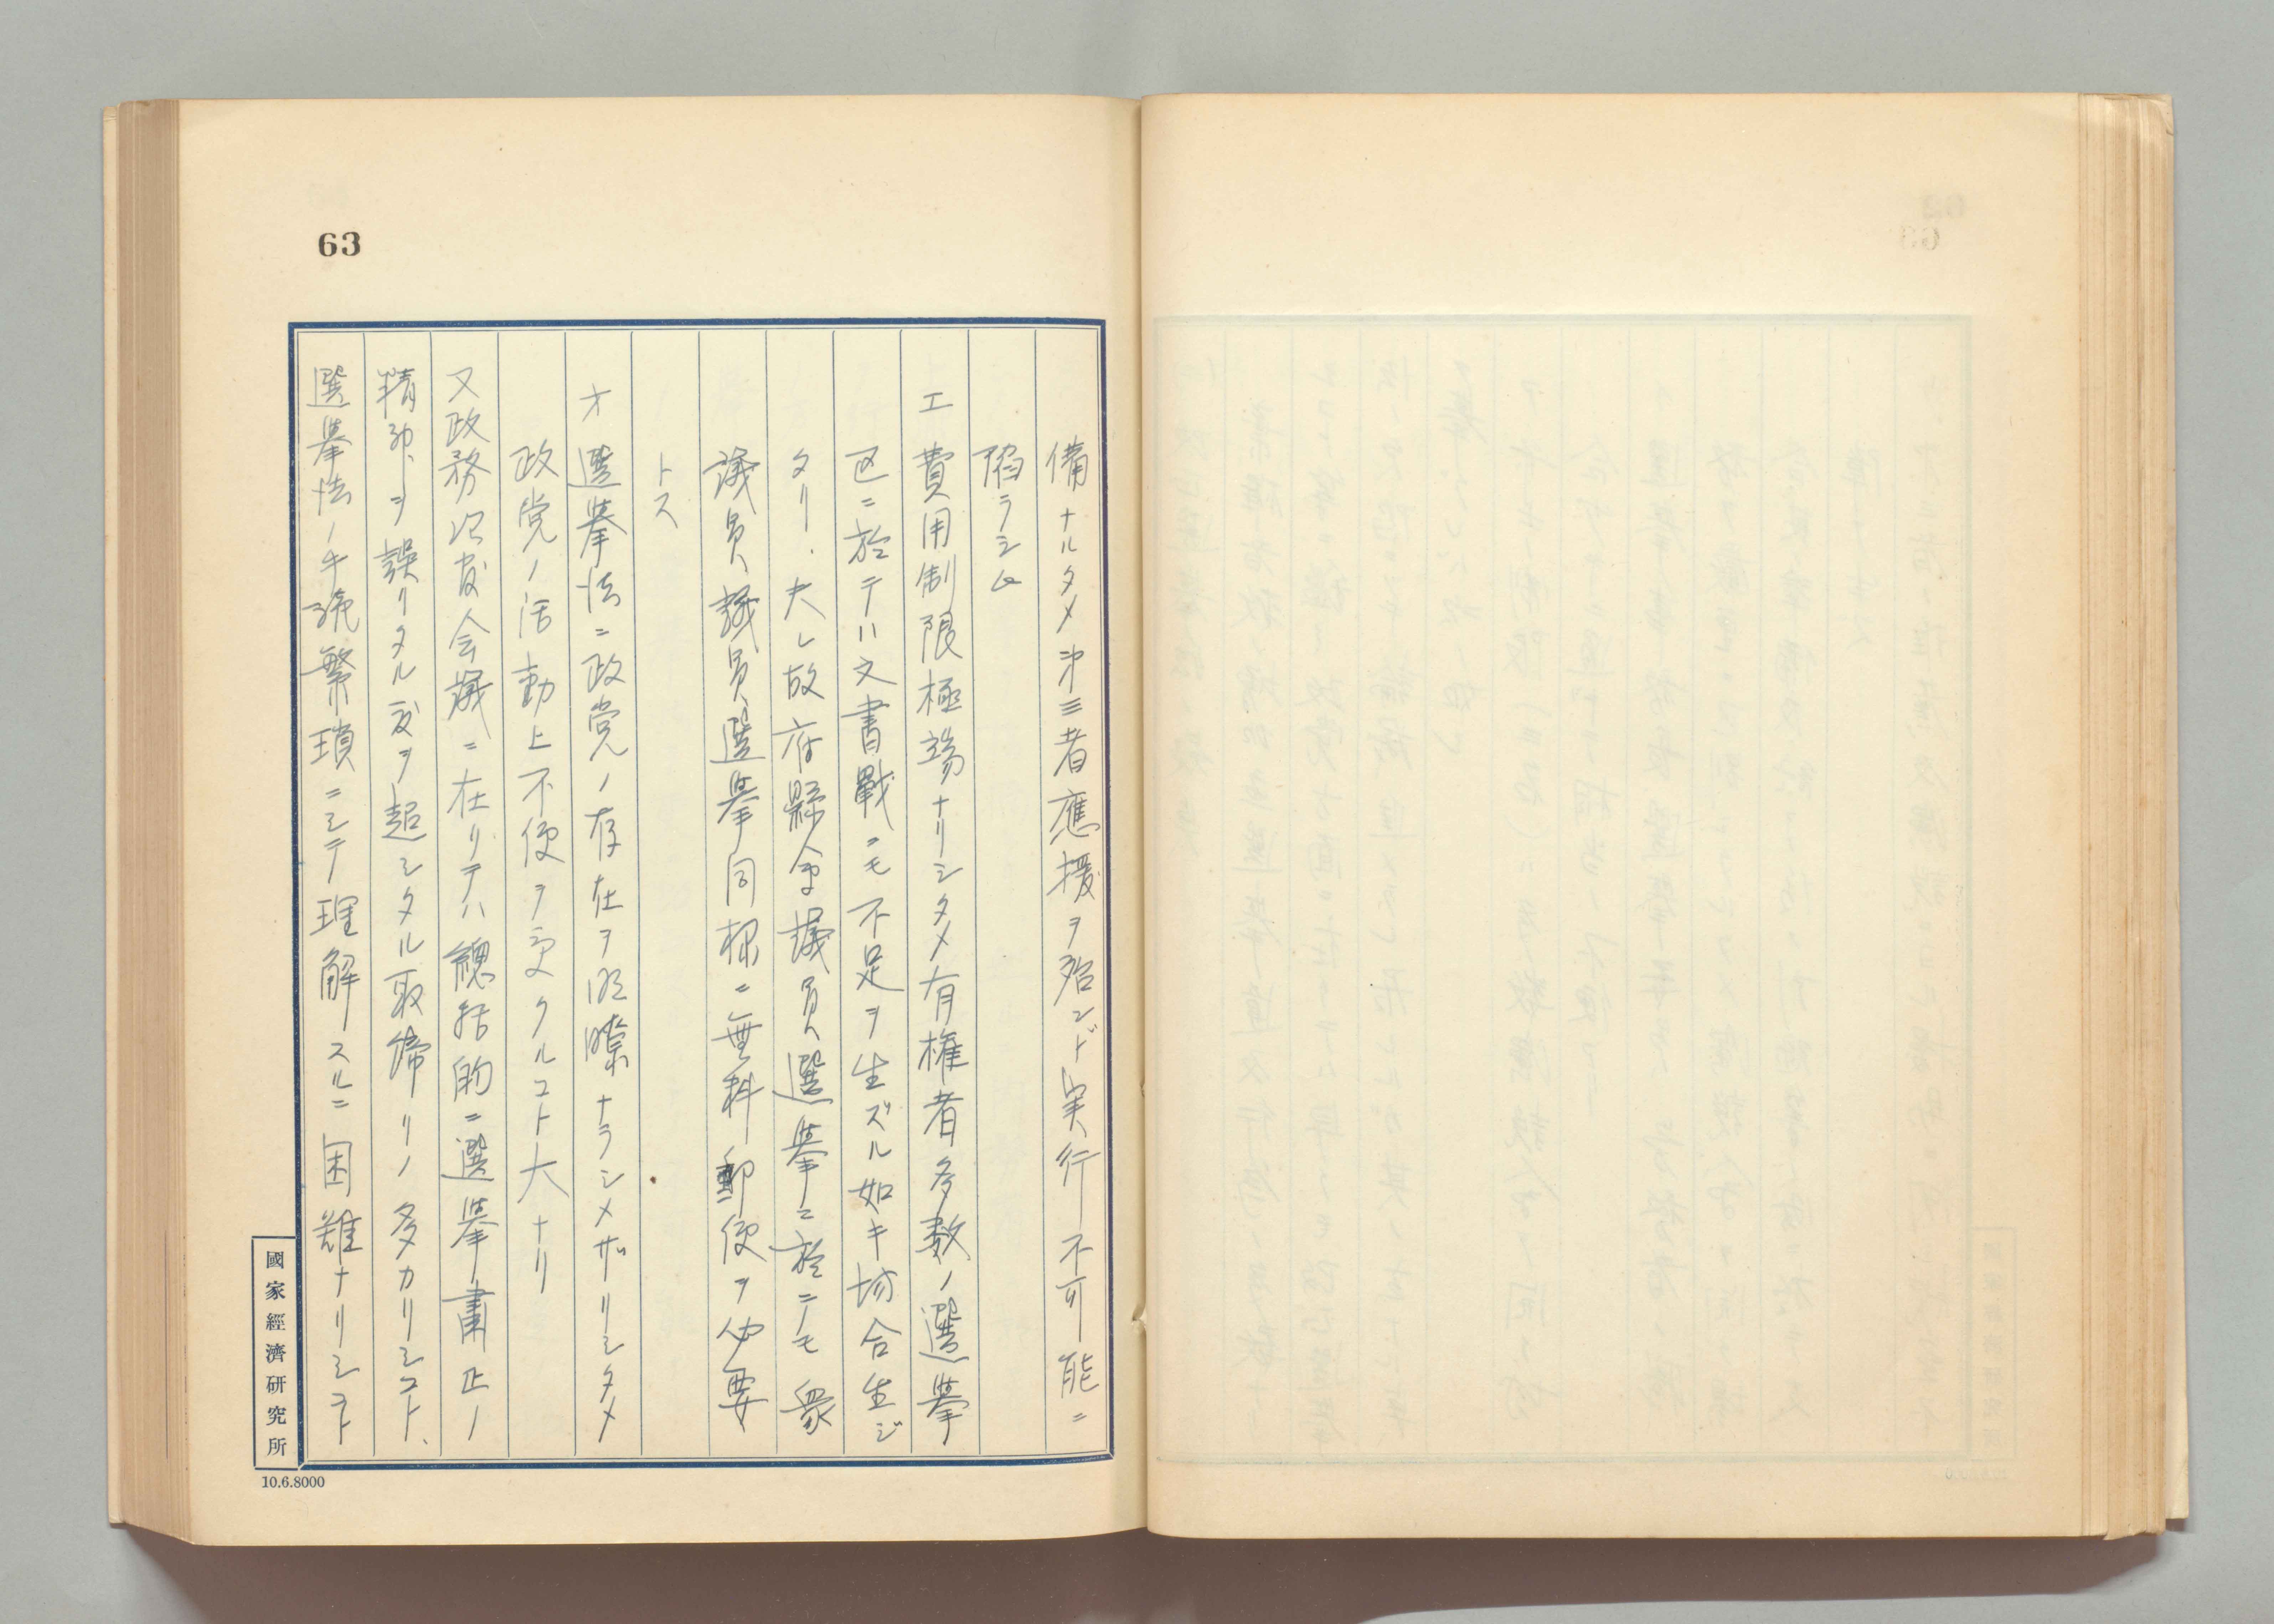 63
備ナルタメ第三者應援ヲ殆ンド実行不可能ニ
陥ラシム
エ 費用制限極端ナリシタメ有権者多数ノ選挙
区ニ於テハ文書戰ニモ不足ヲ生ズル如キ場合生ジ
タリ.夫レ故府縣会議員選挙ニ於ニモ衆
議員議員選挙同様ニ無料郵便ヲ必要
トス
オ 選挙法ニ政党ノ存在ヲ明瞭ナラシメザリシタメ
政党ノ活動上不便ヲ受クルコト大ナリ
又政務調査会議ニ在リテハ總括的ニ選挙粛正ノ
精神ヲ誤リタル度ヲ超シタル取締リノ多カリシコト、
選挙法ノ手続繁瑣ニシテ理解スルニ困難ナリシコト
國家經濟研究所
10.6.8000